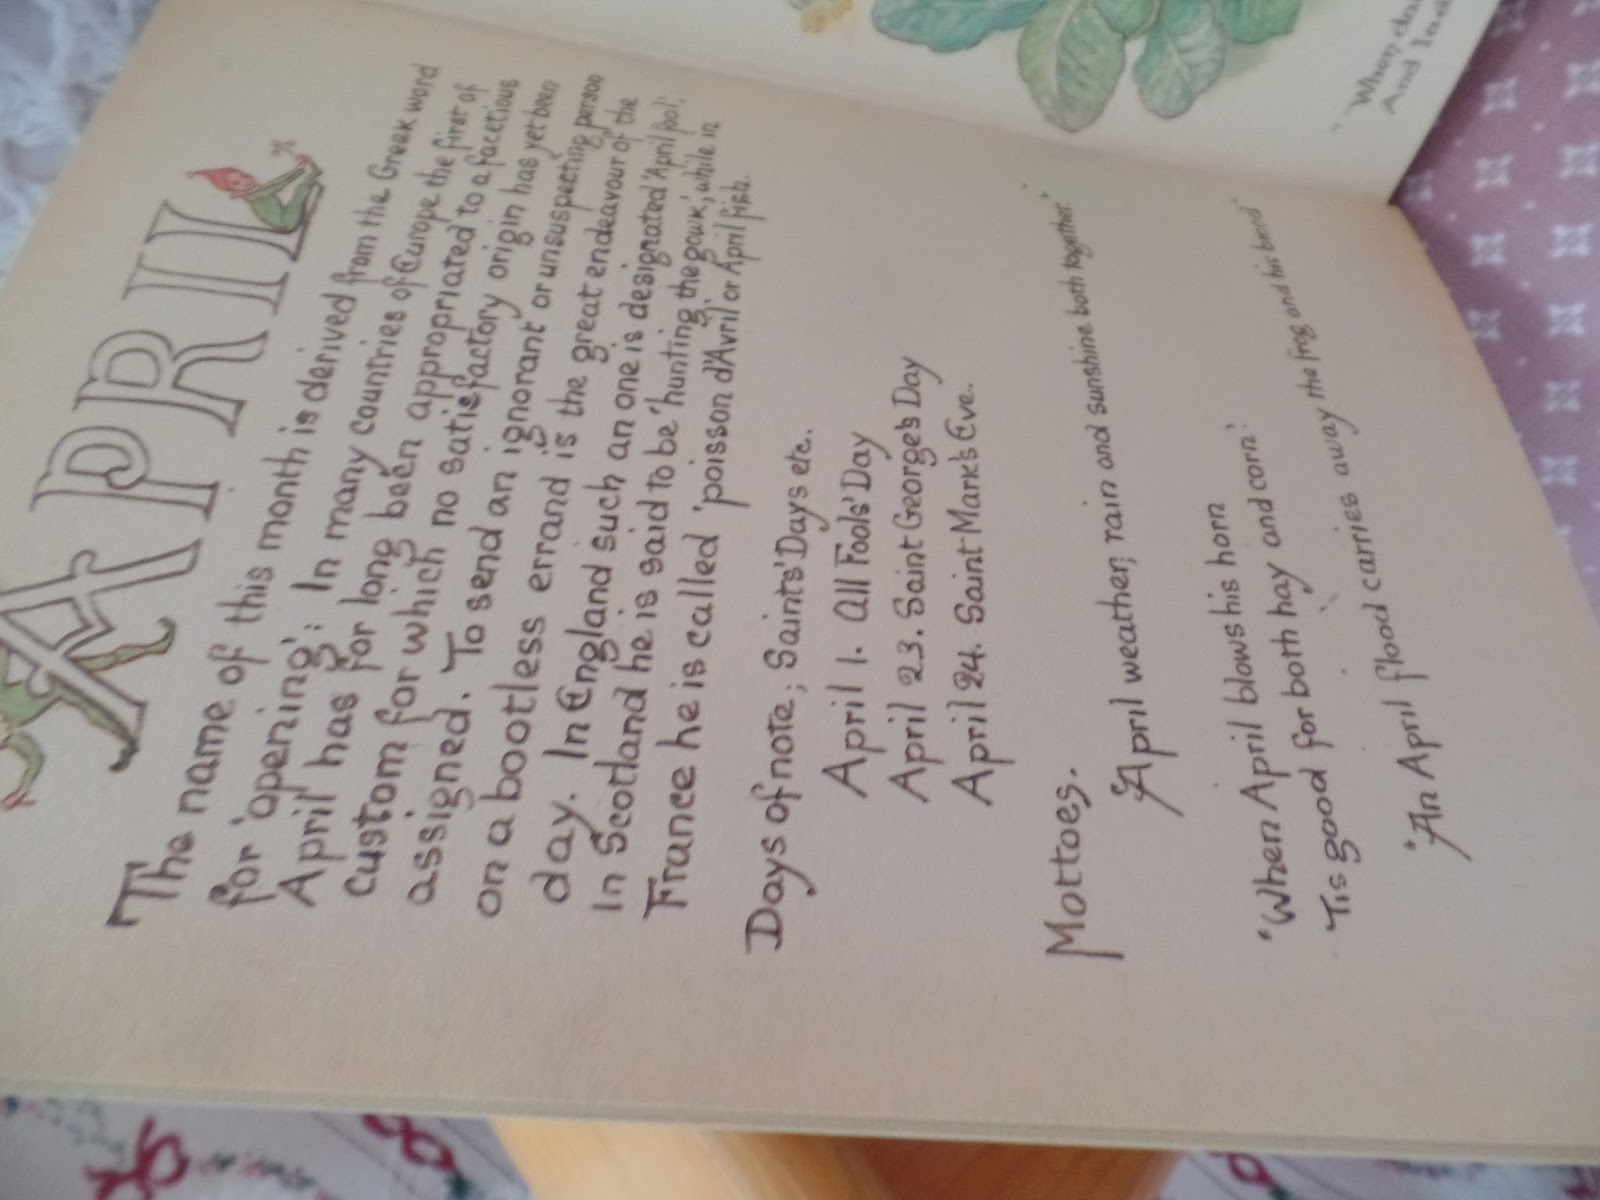 APRIL
The name of this month is derived from the Greek word
for 'opening': In many countries of Europe the first of
April has for long been appropriated to a facetious
custom for which no satisfactory origin has yet been
assigned. To send an ignorant or unsuspecting person
on a bootless errand is the great endeavour of the
day. In England such an one is designated 'April fool',
In Scotland he is said to be 'hunting the gowk', while in
France he is called 'poisson d'Avril' or April fish.
Days of note; Saints' Days etc.
April 1. All Fools' Day
April 23. Saint George's Day
April 24. Saint Mark's Eve.
Mottoes.
"April weather, rain and sunshine both together."
"When April blows his horn
'Tis good for both hay and corn."
"An April flood carries away the frog and his brood"
"When
And